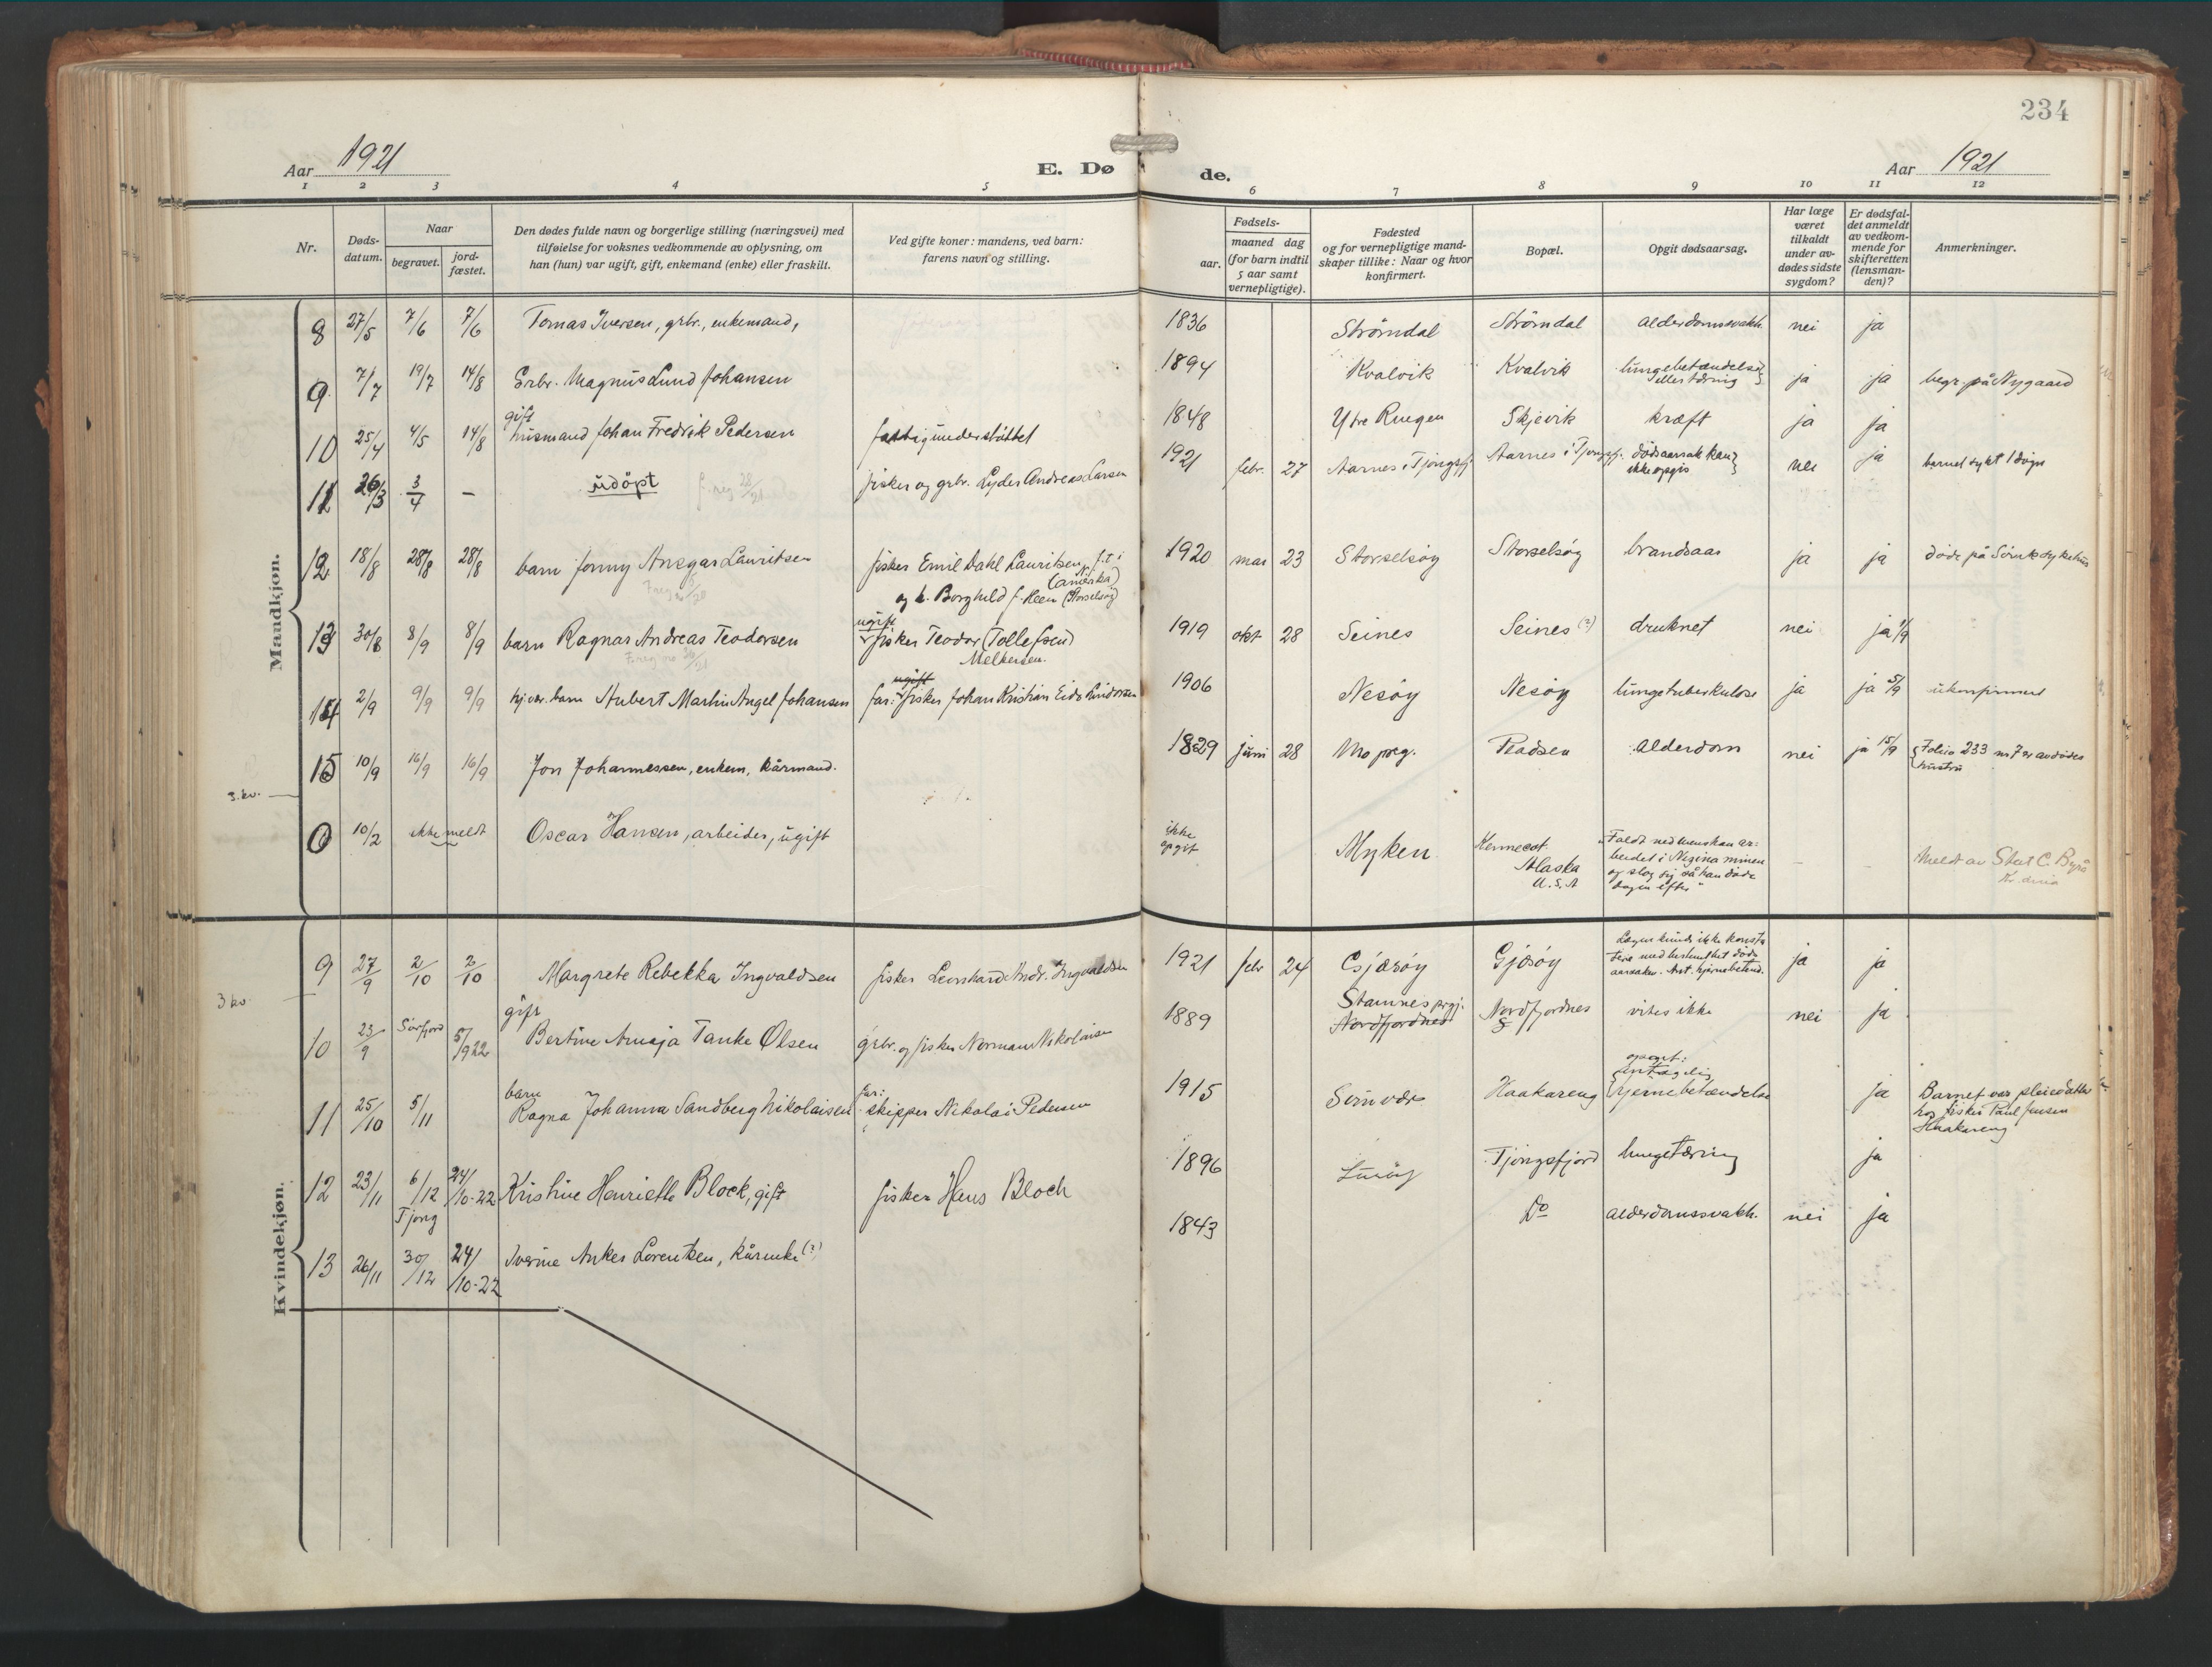 234
Aar 1921
E. Dø
de.
Aar 1921
1 2 3 4 5 6 7 8 9 10 11 12
Nr.
Døds-
datum.
Naar
begravet.
jord-
fæstet.
Den dødes fulde navn og borgerlige stilling (næringsvei) med
tilføielse for voksnes vedkommende av oplysning, om
han (hun) var ugift, gift, enkemand (enke) eller fraskilt.
Ved gifte koner: mandens, ved barn:
farens navn og stilling.
Fødsels-
aar.
maaned dag
(for barn indtil
5 aar samt
vernepligtige).
Fødested
og for vernepligtige mand-
skaper tillike: Naar og hvor
konfirmert.
Bopæl.
Opgit dødsaarsag.
Har læge
været
tilkaldt
under av-
dødes sidste
sygdom?
Er dødsfal-
det anmeldt
av vedkom-
mende for
skifteretten
(lensman-
den)?
Anmerkninger.
Mandkjøn.
8 27/5 7/6 7/6 Tomas Iversen, grbr., enkemand, 1836 Strømdal Strømdal alderdomssvakh. nei ja
9 7/7 19/7 14/8 Grbr. Magnus Lund Johansen 1894 Kvalvik Kvalvik lungebetændelse
eller tæring ja ja begr. på Nygaard
gift
10 25/4 4/5 14/8 husmand Johan Fredrik Pedersen fattigunderstøttet 1848 Ytre Ruegen Skjevik kræft ja ja
11 26/3 3/4 — udøpt fisker og grbr. Lyder Andreas Larsen 1921 febr. 27 Aarnes i Tjongsfj. Aarnes i Tjongsfj. dødsaarsak kan
ikke opgis nei ja barnet sykt 1 døgn
12 18/8 28/8 28/8 barn Jonny Ansgar Lauritsen fisker Emil Dahl Lauritsen, f.t. i
N. (amerika)
og h. Borghild f. Heen (Storselsøy) 1920 mars 23 Storselsøy Storselsøy brandsaar ja ja døde på Sykehus
13 30/8 8/9 8/9 barn Ragnar Andreas Teodorsen ugift
fisker Teodor (Tollefsen)
Melkersen. 1919 okt 28 Seines Seines (?) druknet nei ja 1/9
14 2/9 9/9 9/9 hjvær. barn Hubert Martin Angel Johansen ugift
far: fisker Johan Kristian Eide Lindorsen 1906 Nesøy Nesøy lungetuberkulose ja ja 5/9 ukonfirmert
3. kv.
15 10/9 16/9 16/9 Jon Johannessen, enkem, kårmand. 1829 juni 28 Mo prg. Alderdom nei ja 15/9 Folio 233 nr 7 er avdødes
hustru
0 10/2 ikke meldt Oscar Hansen, arbeider, ugift ikke
opgit Myken Kennecot
Alaska
U.S.A "Faldt ned hvor han ar-
beidet i Nizina minen
og slog sig så han døde
dagen efter" – – Meldt av Stat. C. Byrå
Kr.ania
Kvindekjøn.
9 27/9 2/10 2/10 Margrete Rebekka Ingvaldsen fisker Leonhard Andr. Ingvaldsen 1921 febr 24 Gjærøy Gjærøy Lægen kunde ikke konsta
tere med bestemthet døds
aarsaken. Ant. hjernebetænd. ja ja
3 kv.
gift
10 23/9 Sørfjord 5/9 22 Bertine Amaja Tanke Olsen grbr. og fisker Norman Nikolaisen 1889 Stamnes prgj.
Nordfjordnes Nordfjordnes vites ikke nei ja
barn
11 25/10 5/11 Ragna Johanna Sandberg Nikolaisen far:
skipper Nikolai Pedersen 1915 Sørnvær Haakareng opgit:
antagelig
hjernebetændelse ja Barnet var pleiedatter
hos fisker Paul Jensen
Haakareng
12 23/11 6/12 Tjong 24/10-22 Kristine Henriette Block, gift fisker Hans Bloch 1896 Lurøy Tjongsfjord lungetæring ja
13 26/11 30/12 24/10-22 Iverine Ankes Lorentsen, kårenke (?) 1843 Do alderdomssvakh. nei ja